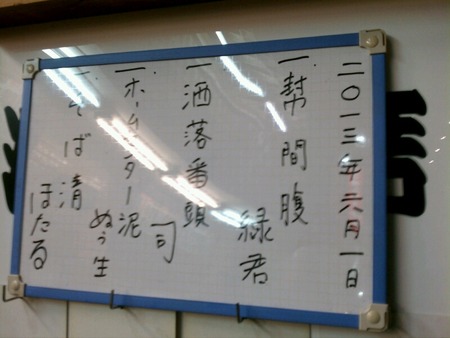 二〇一三年六月一日
一幇間腹
緑君
一洒落番頭
司
一ホームセンター泥
ぬう生
一そば清
ほたる